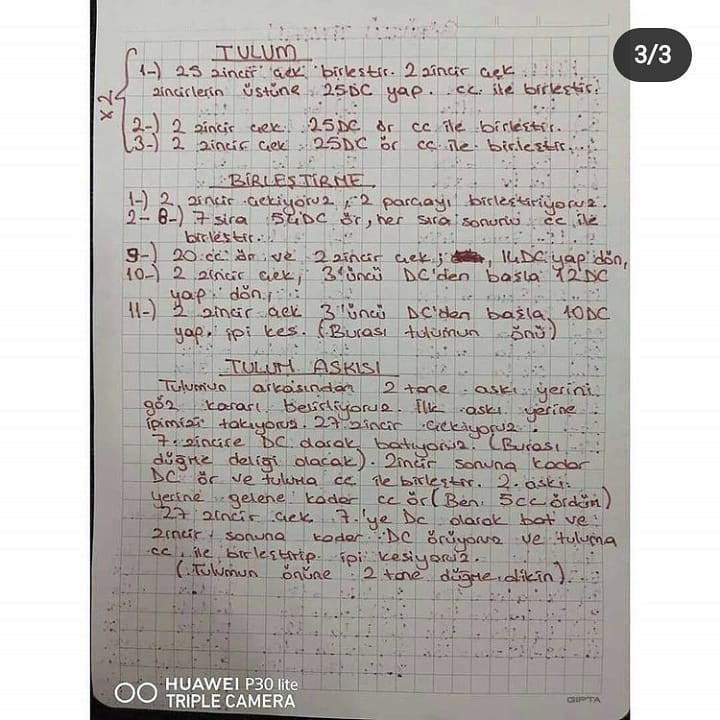 3/3
TULUM
x2
1-) 25 zincir çek birleştir. 2 zincir çek
zincirlerin üstüne 25DC yap. cc ile birleştir.
2-) 2 zincir çek. 25DC ör cc ile birleştir.
3-) 2 zincir çek 25DC ör cc ile birleştir.
BİRLEŞTİRME
1-) 2 zincir çekiyoruz, 2 parçayı birleştiriyoruz.
2- 8-) 7 sıra 54DC ör, her sıra sonunu cc ile
birleştir.
9-) 20 cc ör ve 2 zincir çek; , 14DC yap dön,
10-) 2 zincir çek, 3'üncü DC'den başla 12DC
yap dön,
11-) 2 zincir çek 3'üncü DC'den başla, 10DC
yap. ipi kes. (Burası tulumun önü)
TULUM ASKISI
Tulumun arkasından 2 tane askı yerini
göz kararı belirliyoruz. İlk askı yerine
ipimizi takıyoruz. 27 zincir çekiyoruz.
7. zincire DC olarak batıyoruz. (Burası
düğme deliği olacak). Zincir sonuna kadar
DC ör ve tuluma cc ile birleştir. 2. askı
yerine gelene kadar cc ör (Ben 5cc ördüm)
27 zincir çek 7.'ye Dc olarak bat ve
zincir sonuna kadar DC örüyoruz ve tuluma
cc ile birleştirip ipi kesiyoruz.
(Tulumun önüne 2 tane düğme dikin)
HUAWEI P30 lite
TRIPLE CAMERA
GIPTA